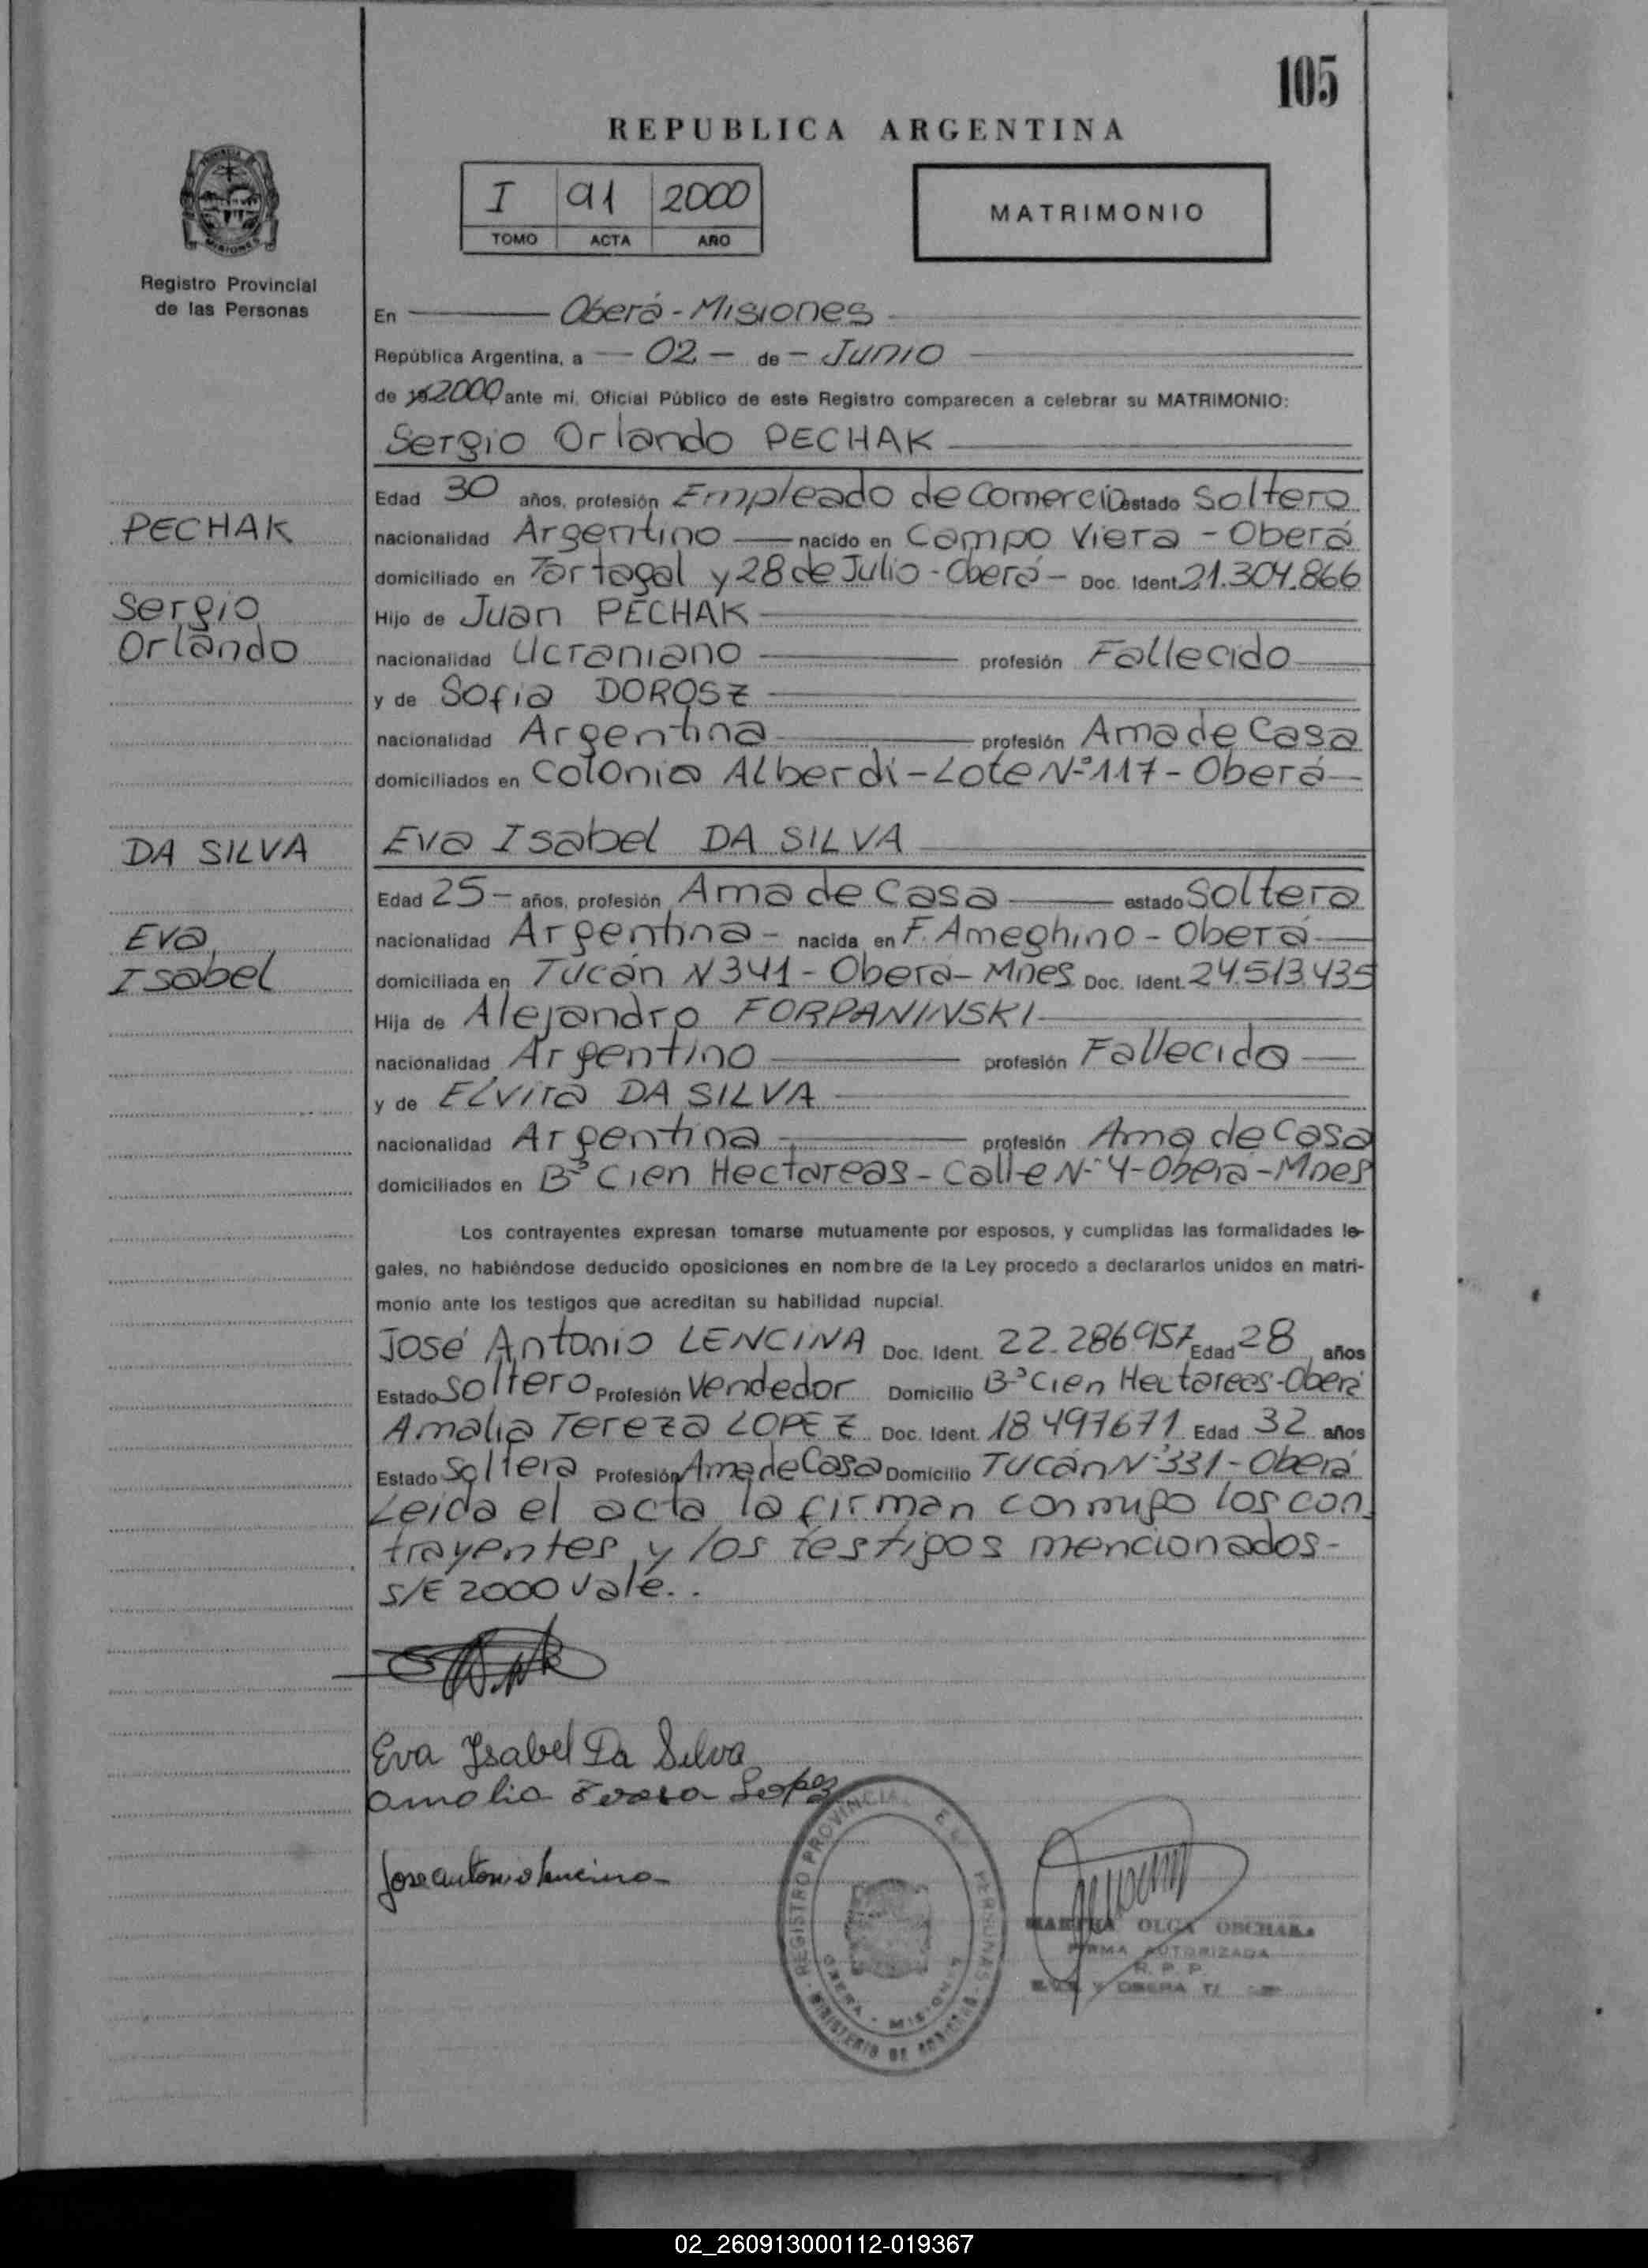 105
REPUBLICA ARGENTINA
I 91 2000
TOMO ACTA AÑO
MATRIMONIO
Registro Provincial
de las Personas
En Oberá - Misiones
República Argentina, a 02 - de - Junio
de 2000 ante mí, Oficial Público de este Registro comparecen a celebrar su MATRIMONIO:
Sergio Orlando PECHAK
Edad 30 años, profesión Empleado de Comercio estado Soltero
PECHAK
nacionalidad Argentino nacido en Campo Viera - Oberá
domiciliado en Tartagal y 28 de Julio - Oberá - Doc. Ident. 21.304.866
Sergio
Orlando
Hijo de Juan PECHAK
nacionalidad Ucraniano profesión Fallecido
y de Sofia DOROSZ
nacionalidad Argentina profesión Ama de Casa
domiciliados en Colonia Alberdi - Lote Nº 117 - Oberá
DA SILVA
Eva Isabel DA SILVA
Edad 25 - años, profesión Ama de Casa estado Soltera
Eva
Isabel
nacionalidad Argentina - nacida en F. Ameghino - Oberá
domiciliada en Tucán N 341 - Oberá - Mnes Doc. Ident. 24.513.435
Hija de Alejandro FORPANINSKI
nacionalidad Argentino profesión Fallecido
y de Elvira DA SILVA
nacionalidad Argentina profesión Ama de Casa
domiciliados en Bº Cien Hectareas - Calle Nº 4 - Oberá - Mnes
Los contrayentes expresan tomarse mutuamente por esposos, y cumplidas las formalidades le-
gales, no habiéndose deducido oposiciones en nombre de la Ley procedo a declararlos unidos en matri-
monio ante los testigos que acreditan su habilidad nupcial.
José Antonio LENCINA Doc. Ident. 22.286957 Edad 28 años
Estado Soltero Profesión Vendedor Domicilio Bº Cien Hectareas - Oberá
Amalia Tereza LOPEZ Doc. Ident. 18.497671 Edad 32 años
Estado Soltera Profesión Ama de Casa Domicilio Tucán Nº 331 - Oberá
Leida el acta la firman conmigo los con
trayentes y los testigos mencionados -
S/E 2000 vale..
Eva Isabel Da Silva
Amalia Teresa Lopez
Jose antonio lencina
REGISTRO PROVINCIAL PERSONAS
MINISTERIO DE
OBERA - MISIONES
MARTHA OLGA
FIRMA AUTORIZADA
R. P. P.
OBERA
02_260913000112-019367